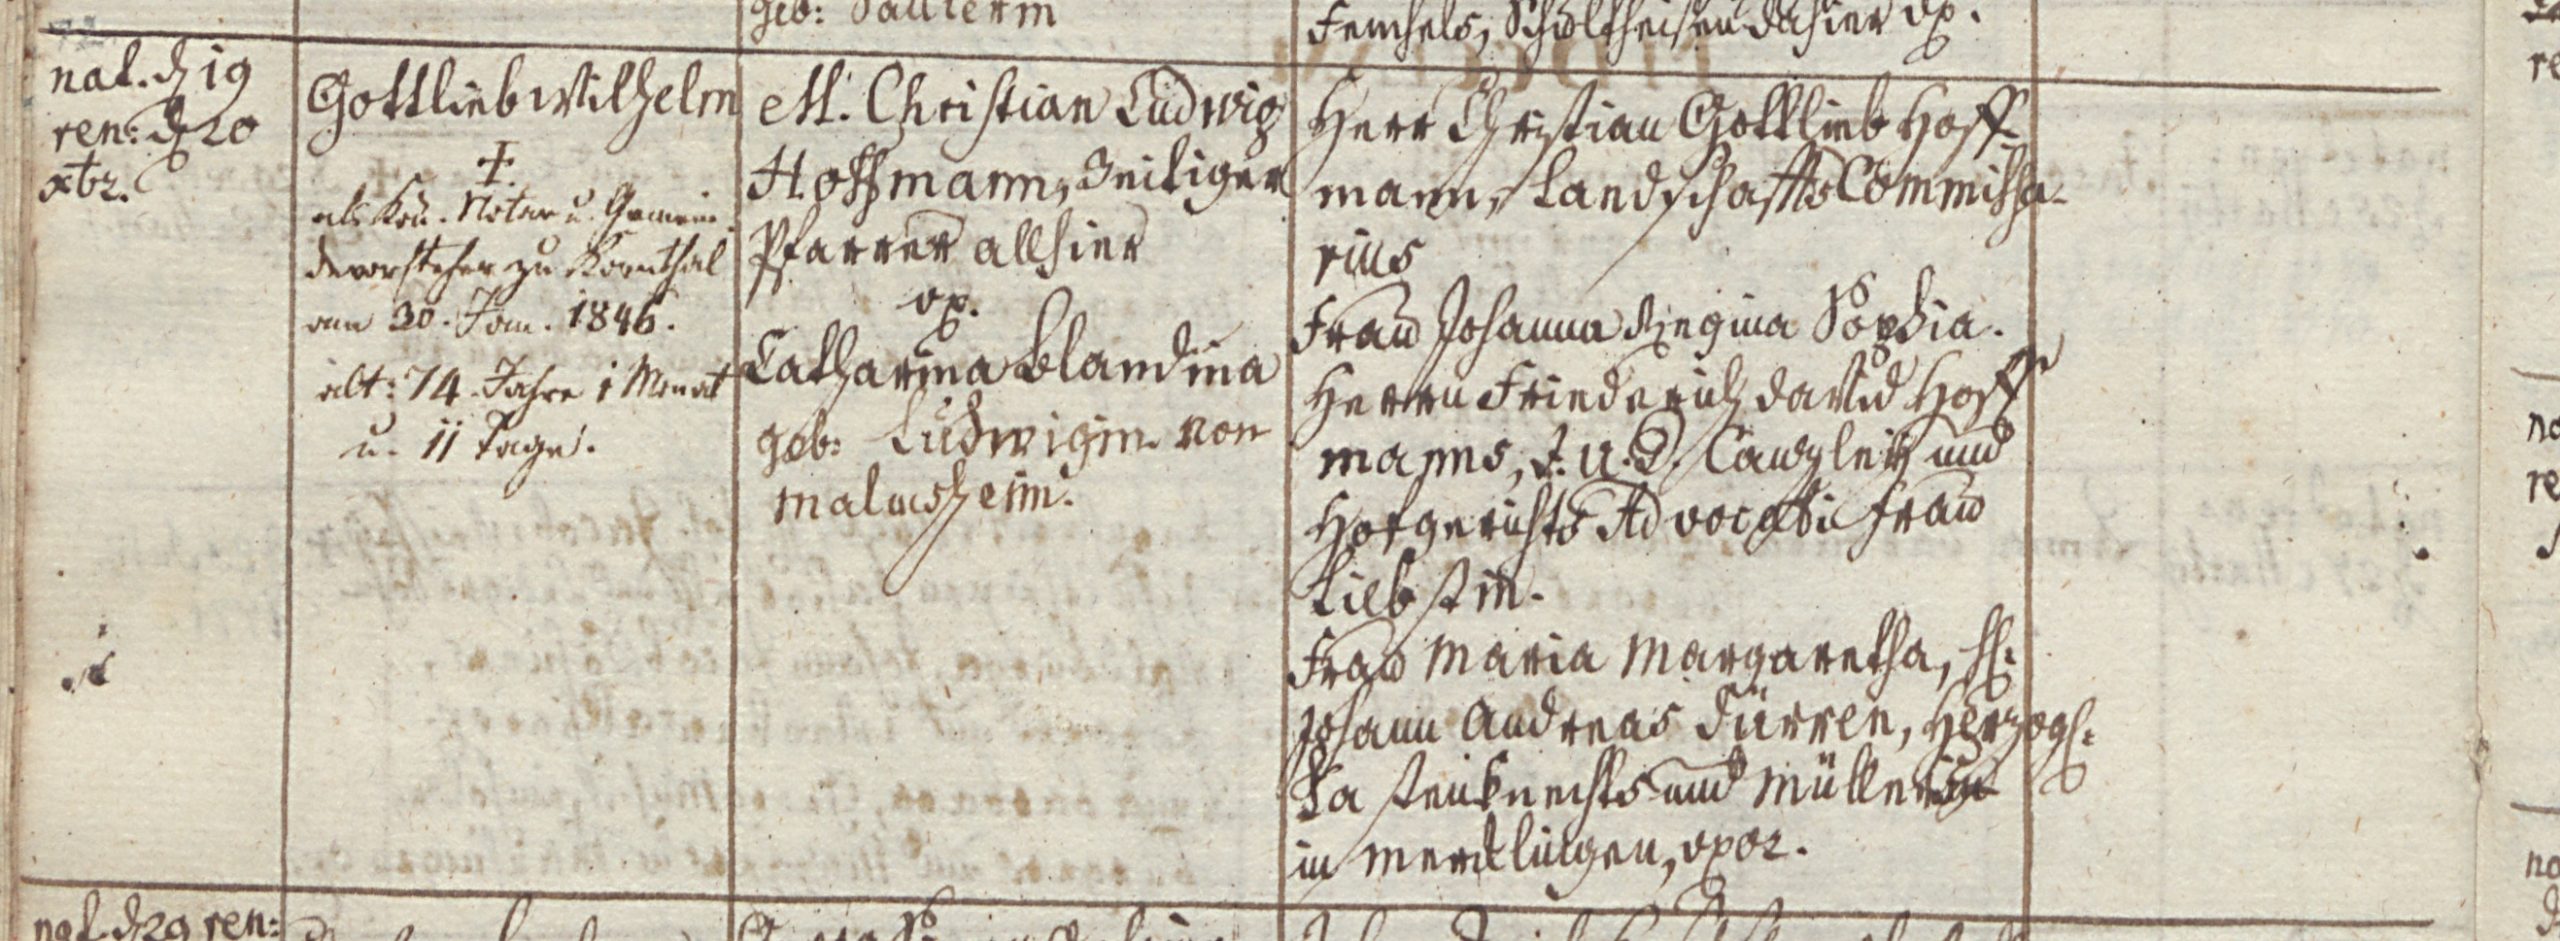 geb: Sautterin
Femhels, Schultheisen dahier ux.
nat. d 19
ren: d 20
xbr.
Gottlieb Wilhelm
†
als Kön. Notar u. Gemein-
devorsteher zu Kornthal
am 30. Jan. 1846.
alt: 74 Jahre 1 Monat
u. 11 Tage.
M. Christian Ludwig
Hoffmann, Zeitiger
Pfarrer allhier
ux.
Catharina Blandina
geb: Ludwigin von
Malmsheim.
Herr Christian Gottlieb Hoff-
mann, Landschaffts Commissa-
rius
Frau Johanna Regina Sophia.
Herrn Friederich David Hoff-
manns, J. U. D. Canzley und
Hofgerichts Advocati Frau
Liebstin.
Frau Maria Margaretha, H:
Johann Andreas Dürren, Herzogl:
Kastenknechts und Müllers
in Merklingen, uxor.
nat. d 29 ren: